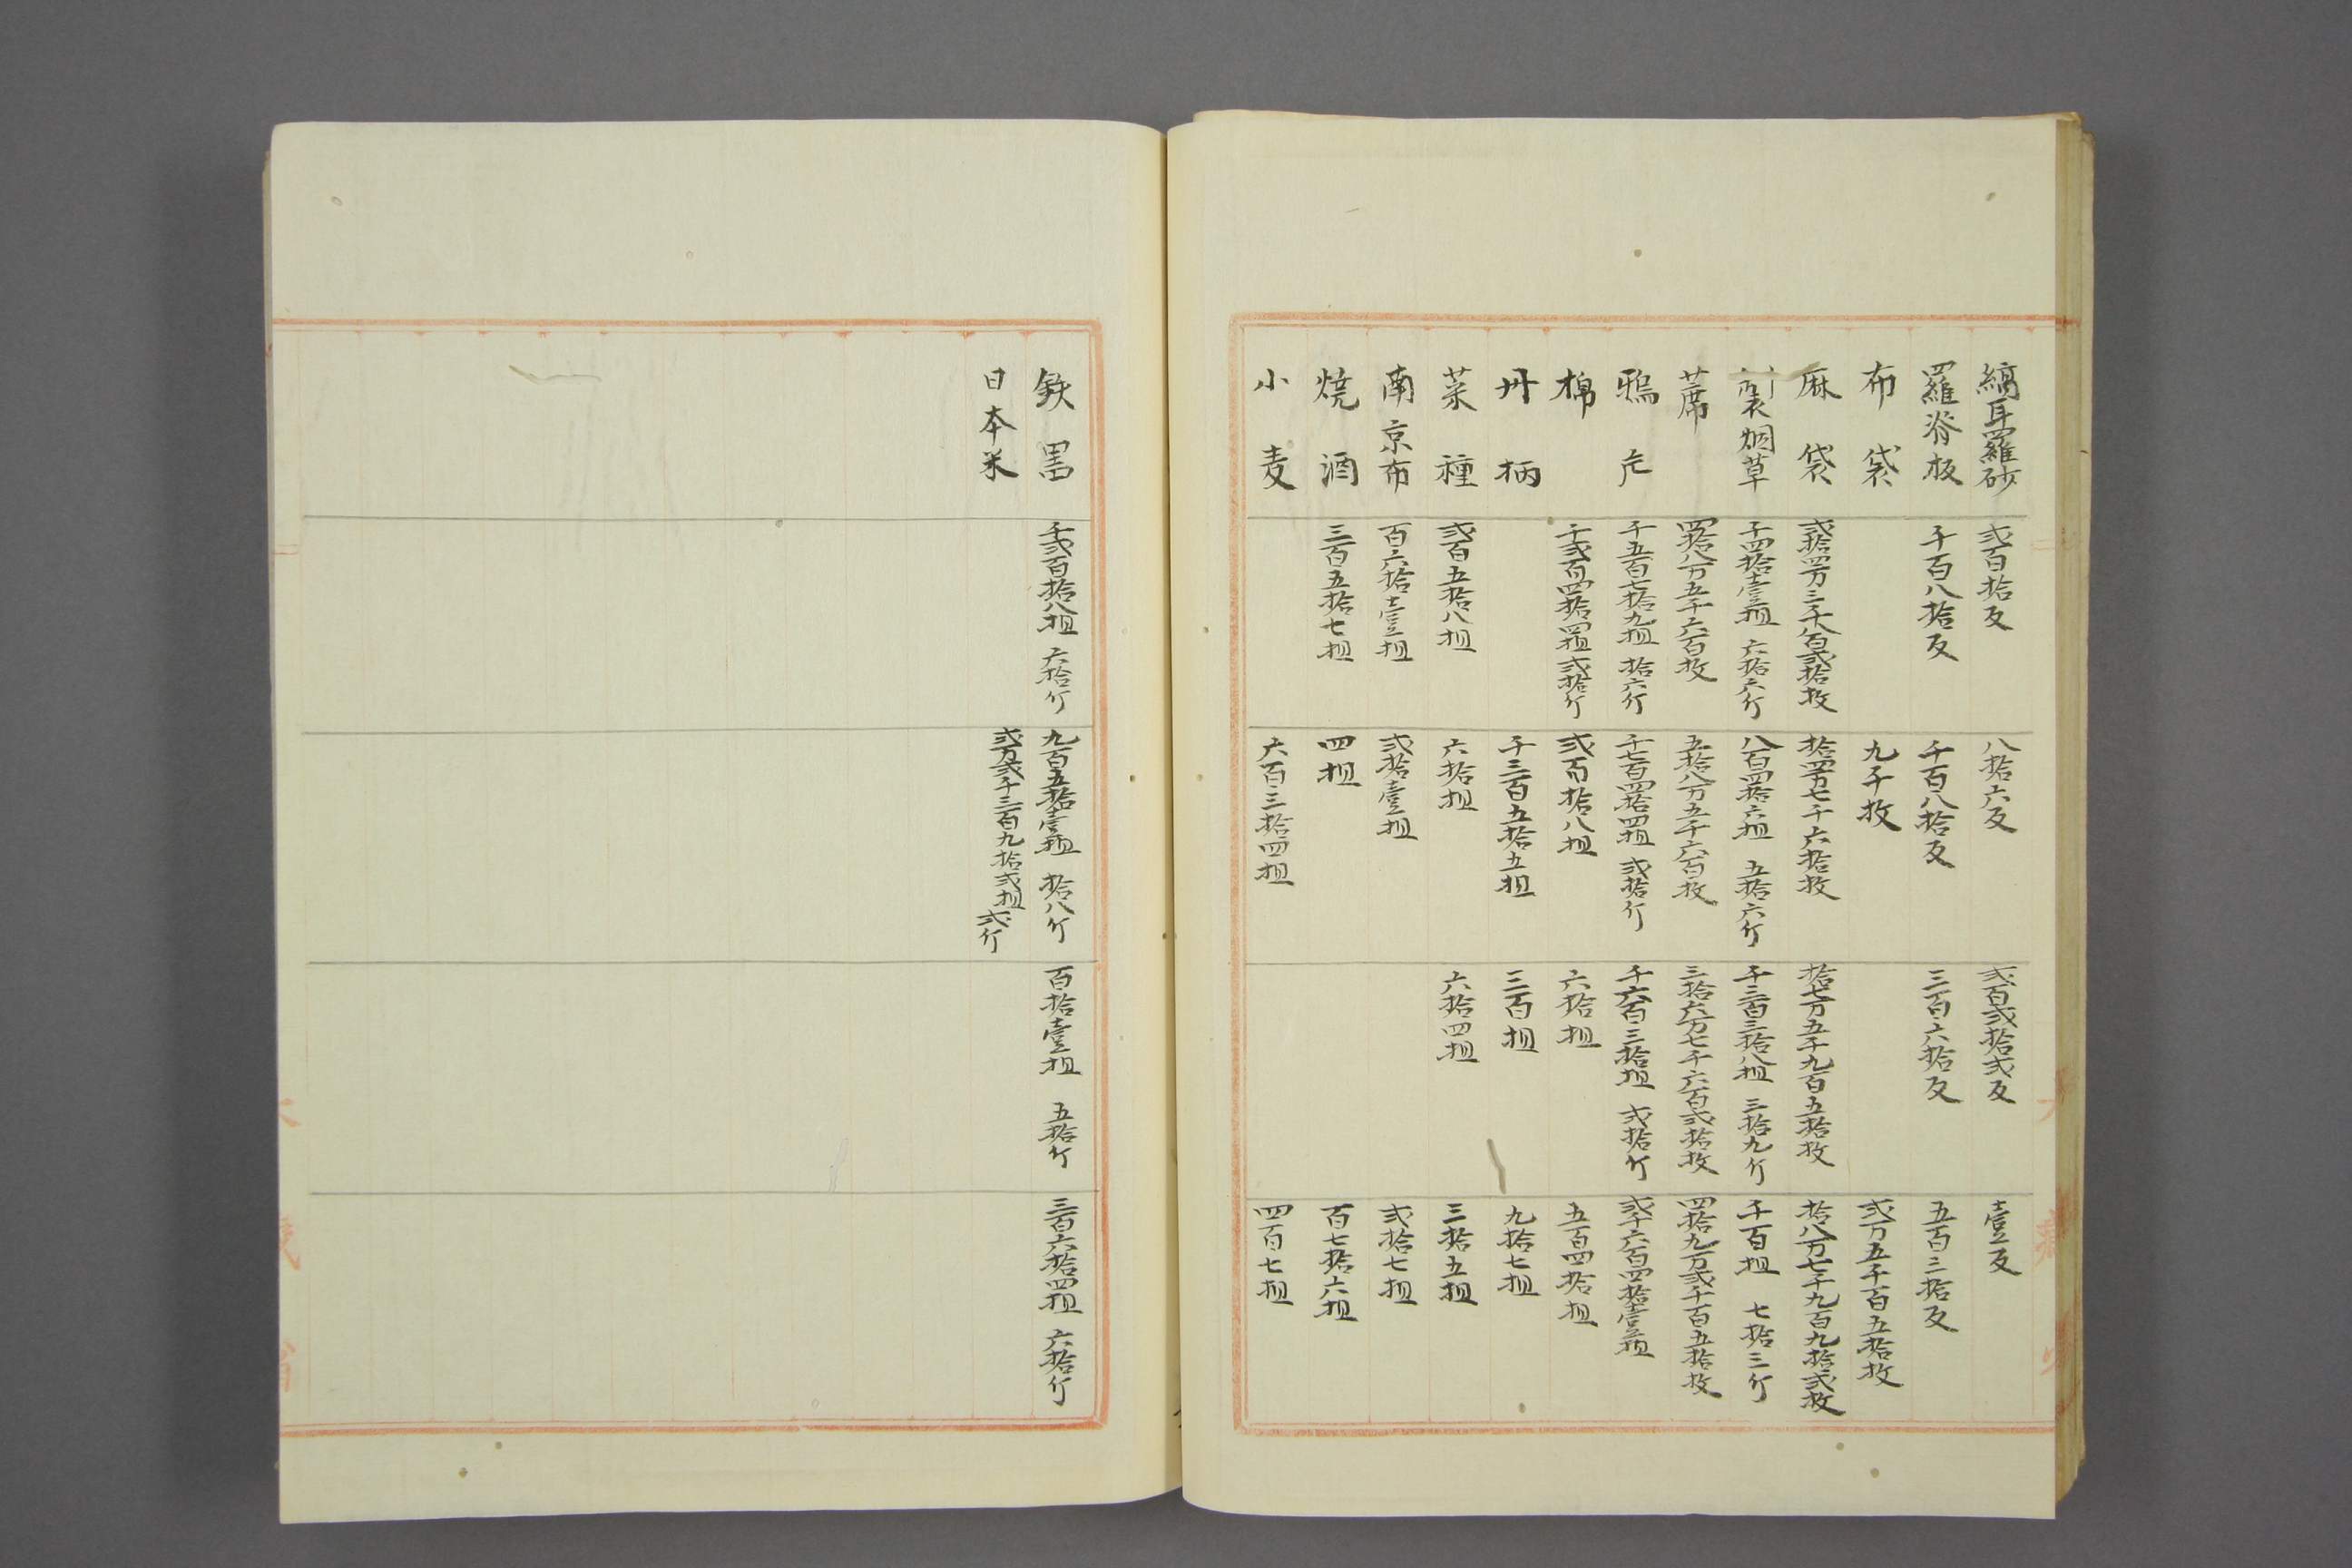 縞耳羅紗 弐百拾反 八拾六反 弐百弐拾弐反 壹反
羅脊板 千百八拾反 千百八拾反 三百六拾反 五百三拾反
布袋 九千枚 弐万五千百五拾枚
麻袋 弐拾四万三千八百弐拾枚 拾四万七千六拾枚 拾七万五千九百五拾枚 拾八万七千九百九拾弐枚
製烟草 千四拾壹担 六拾六斤 八百四拾六担 五拾六斤 千三百三拾八担 三拾九斤 千百担 七拾三斤
席 四拾八万五千六百枚 五拾八万五千六百枚 三拾六万七千六百弐拾枚 四拾九万弐千百五拾枚
鴉片 千五百七拾九担 拾六斤 千七百四拾四担 弐拾斤 千六百三拾担 弐拾斤 弐千六百四拾壹担
棉 千弐百四拾四担 弐拾斤 弐百拾八担 六拾担 五百四拾担
丹柄 千三百五拾五担 三百担 九拾七担
菜種 弐百五拾八担 六拾担 六拾四担 三拾五担
南京布 百六拾壹担 弐拾壹担 弐拾七担
焼酒 三百五拾七担 四担 百七拾六担
小麦 六百三拾四担 四百七担
鉄 千弐百拾八担 六拾斤 九百五拾壹担 拾八斤 百拾壹担 五拾斤 三百六拾四担 六拾斤
日本米 弐万弐千三百九拾弐担 弐斤